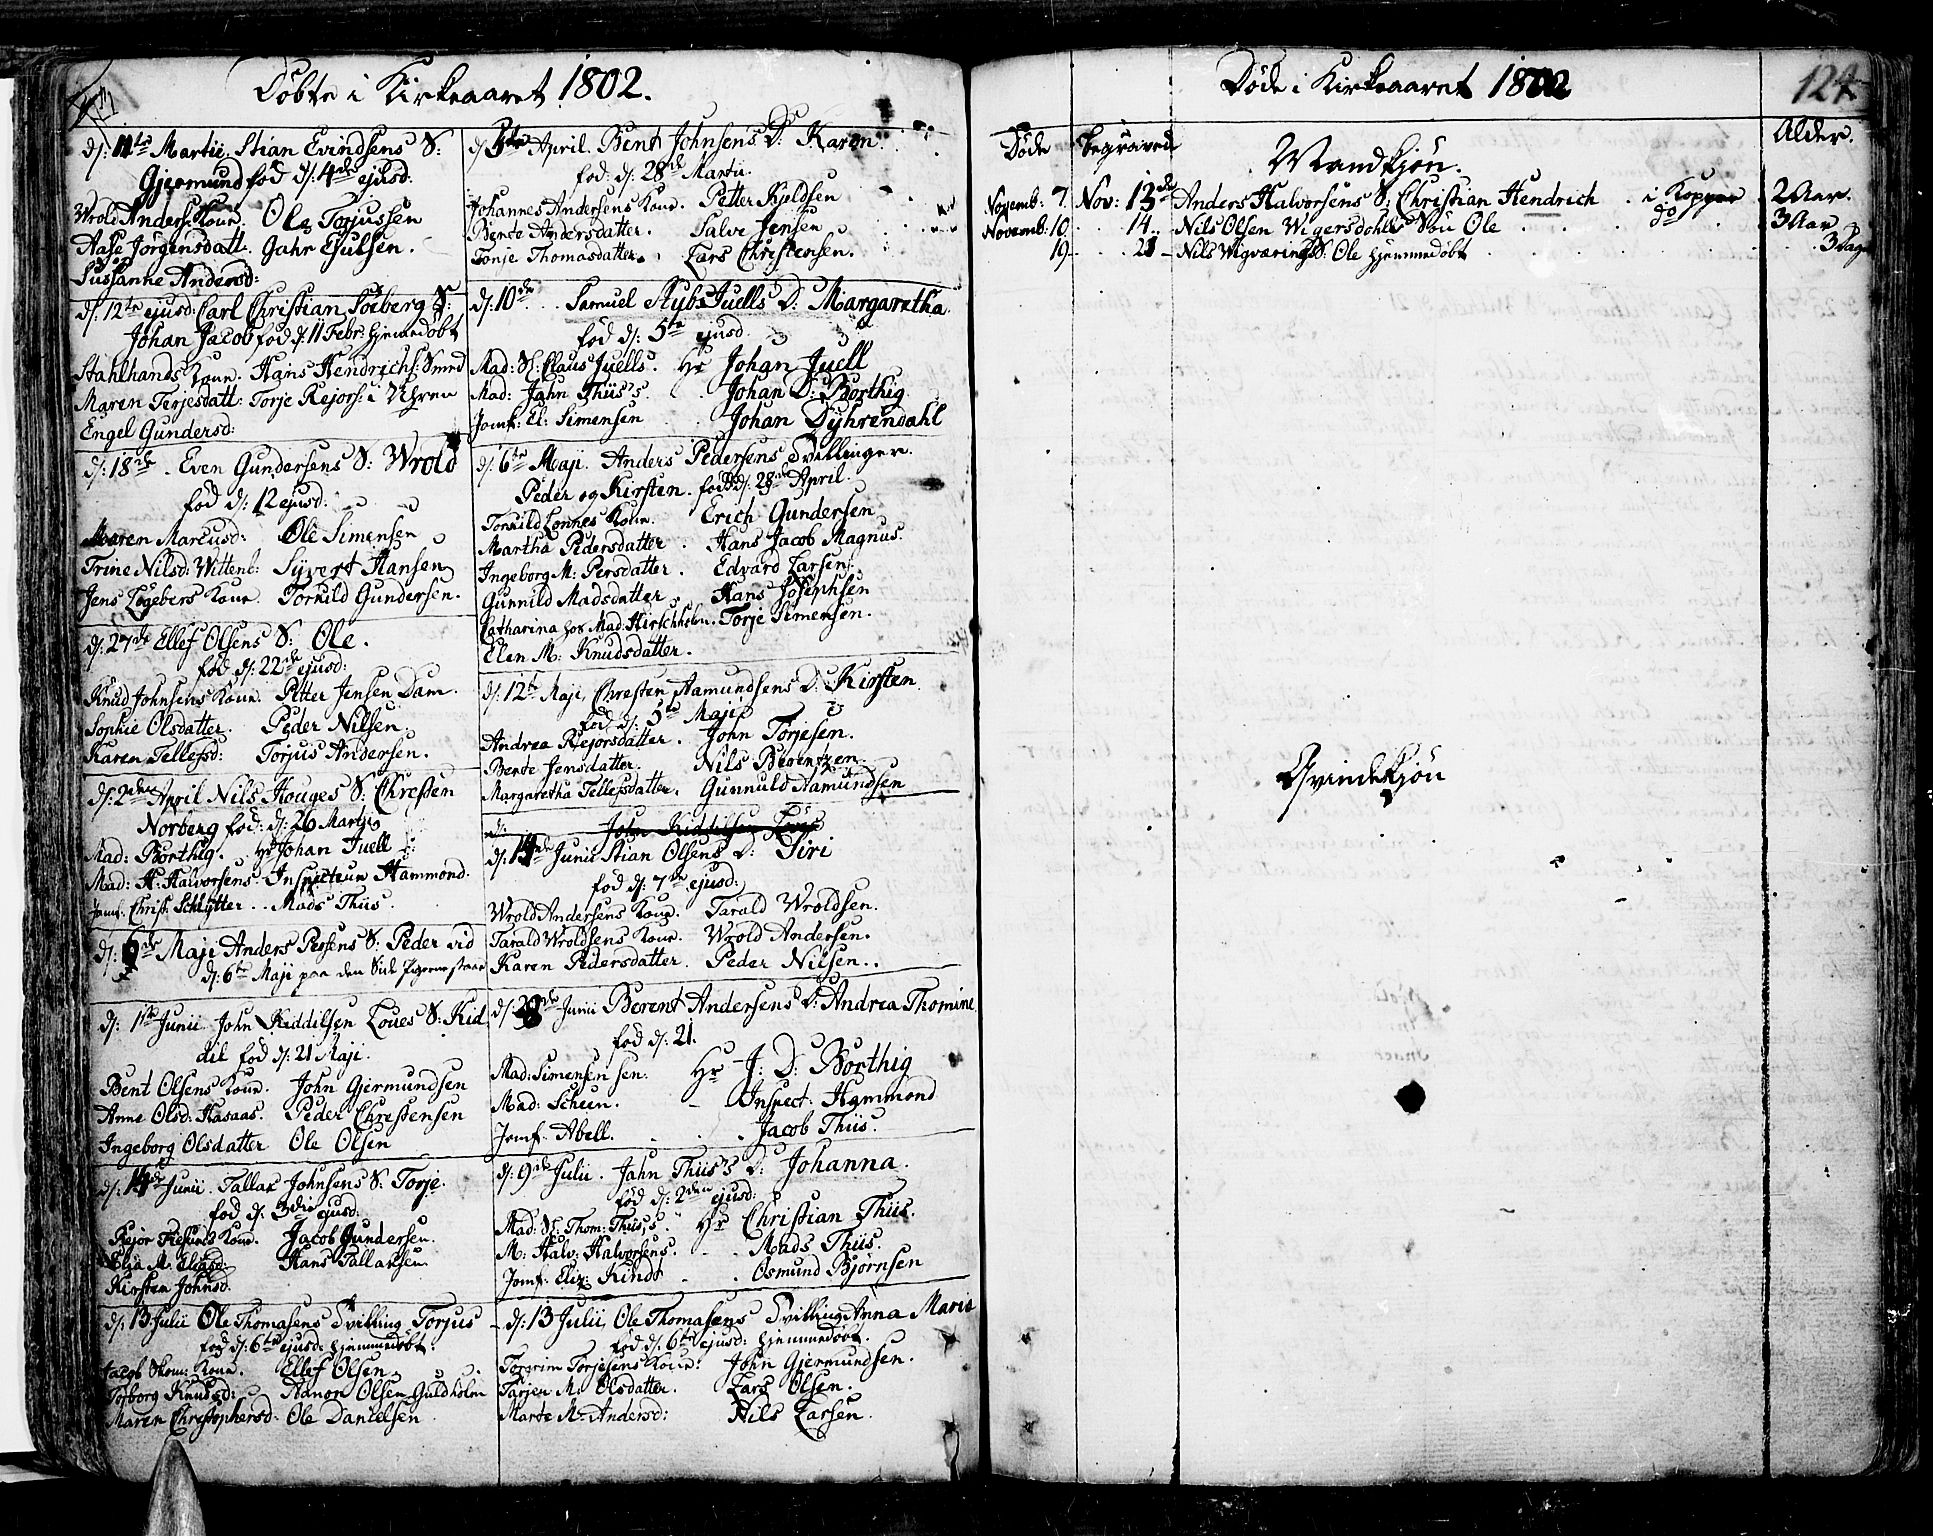 Døbte i Kirkeaaret 1802.
d: 11te Martii, Stian Evindsens S:
Gjermund fød d: 4de ejusd:
Wrold Anders: Kone. Ole Torjussen
Aase Jørgensdatt: Gahr Ejulsen.
Sussanne Andersd:
d: 12te ejusd: Carl Christian Søeberg S:
Johan Jacob fød d: 11 Febr: hjemmedøbt
Stahlhands Kone. Hans Hendrichs: Smed
Maren Terjesdatt: Torje Rejors: i
Engel Gundersd:
d: 18de. Even Gundersens S: Wrold
fød d: 12 ejusd:
Maren Marcusd: Ole Simensen
Trine Nilsd: Wittenb: Syvert Hansen
Jens Kone. Torkild Gundersen.
d: 27de Ellef Olsens S: Ole.
fød d: 22de ejusd:
Knud Johnsens Kone. Petter Jensen Dam.
Sophie Olsdatter. Peder Nilsen
Karen Tellefsd: Torjus Andersen.
d: 2den April Nils Houges S: Chresten
Norberg fød: d: 26 Martii
Mad: Borthig. Hr Johan Juell
Mad: H: Halvorsens. Inspecteur Hammond.
Jomf. Christ: Schlytter. Mads Thiis.
d: 6te Maji Anders Persens S: Peder
d: 6te Maji paa den Side
d: 1te Junii John Kiddilsen Loues S: Kid
dil fød d: 21 Maji.
Bent Olsens Kone. John Gjermundsen
Anne Olsd: Hasaas. Peder Chrestensen
Ingeborg Olsdatter Ole Olsen
d: 14de Junii. Tallak Johnsens S: Torje.
fød d: 3die ejusd:
Rejor Kone. Jacob Gundersen.
M. Hans Tallaksen
Kirsten Johnsd.
d: 13 Julii Ole Thomasens Tvilling Torjus
fød d: 6te ejusd: hjemmedøbt:
Jacob Skom: Kone. Ellef Olsen
Torborg Knudsd: Aanon Olsen Guldholm
Maren Christophersd. Ole Danielsen
d: 5te April. Bent Johnsens D: Karen.
fød: d: 28de Martii.
Johannes Andersens Kone. Petter Kjeldsen
Berte Andersdatter. Salve Jensen
Tonje Thomasdatter. Lars Christensen.
d: 10de. Samuel Rybs Juells D: Margaretha
fød d: 5te ejusd
Mad: Sl: Claus Juells. Hr Johan Juell
Mad: Jahn Thiis's. Johan D: Borthig.
Jomf: El: Simensen Johan Dyhrendahl
d: 6te Maji. Anders Pedersens Tvillinger.
Peder og Kirsten. fødde d: 28de April.
Torkild Lonnes Kone. Erich Gundersen
Martha Pedersdatter. Hans Jacob Magnus.
Ingeborg M: Persdatter. Edvard Larsen.
Gunnild Madsdatter. Hans Josephsen
Catharina hos Mad: Hirschholm. Torje Simensen.
Elen M: Knudsdatter.
d: 12te Maji, Chresten Aamundsens D: Kirsten
fød d: 5te Maji
Andrea Rejorsdatter. John Torjesen.
Berte Jensdatter. Nils Berentzen
Margaretha Tellefsdatter. Gunnuld Aamundsen
d: John Kiddilsen Loues
d: 14de Junii Stian Olsens D: Siri
fød d: 7de ejusd:
Wrold Andersens Kone. Tarald Wroldsen.
Tarald Wroldsens Kone. Wrold Andersen.
Karen Pedersdatter. Peder Nilsen.
d: 28de Junii Berent Andersens D: Andrea Thomine
fød d: 21.
Mad: Simensen sen. Hr J: D: Borthig
Mad: Scheen. Inspect. Hammond
Jomf. Abell. Jacob Thiis.
d: 9de Julii. Jahn Thiis's D: Johanna.
fød d: 2den ejusd:
Mad: Sl: Thom: Thiis's. Hr Christian Thiis.
M: Halv: Halvorsens. Mads Thiis.
Jomf: Eliz: Kindt Osmund Bjørnsen
d: 13 Julii, Ole Thomasens Tvilling Anna Maria
fød d: 6te ejusd: hjemmedøbt.
Torgrim Torjesens Kone: John Gjermundsen.
Tarjer M. Olsdatter. Lars Olsen.
Marte M. Andersd: Nils Larsen.
Døde i Kirkeaaret 1802
124
Døde Begravede Mandkjøn. Alder.
Novemb: 7. Nov: 13de Anders Halvorsens S: Christian Hendrich. i Kopper 2 Aar.
Novemb: 10 14. Nils Olsen Wigersdahls Søn Ole do 3 Aar
19 21 Nils Wigværings S: Ole hjemmedøbt 3 Dage
Qvindekjøn